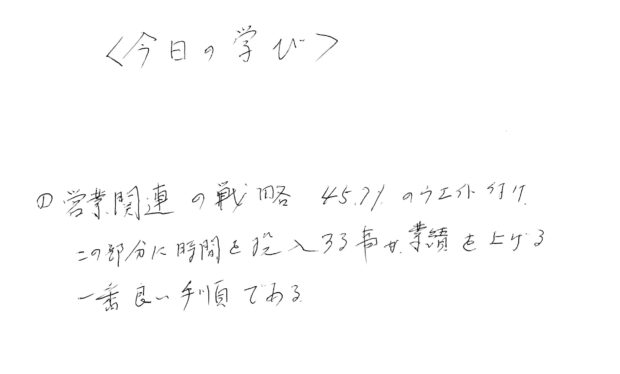 〈今日の学び〉
① 営業関連の戦略 45.7%のウエイト付け
この部分に時間を投入する事が、業績を上げる
一番良い手順である